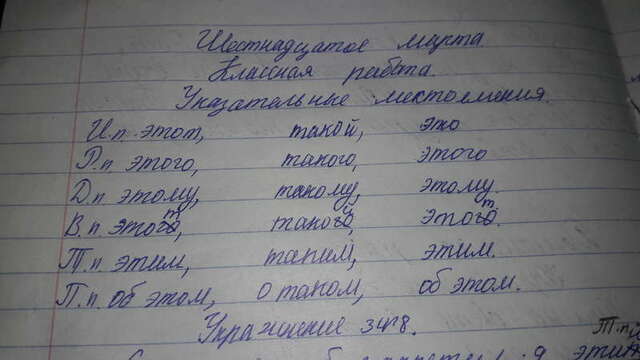 Шестнадцатое марта.
Классная работа.
Указательные местоимения.
И.п. этот, такой, это
Р.п этого, такого, этого
Д.п этому, такому, этому.
В.п этот, такой, этот.
Т.п этим, таким, этим.
П.п. об этом, о таком, об этом.
Упражнение 348.
Т.п.
этим